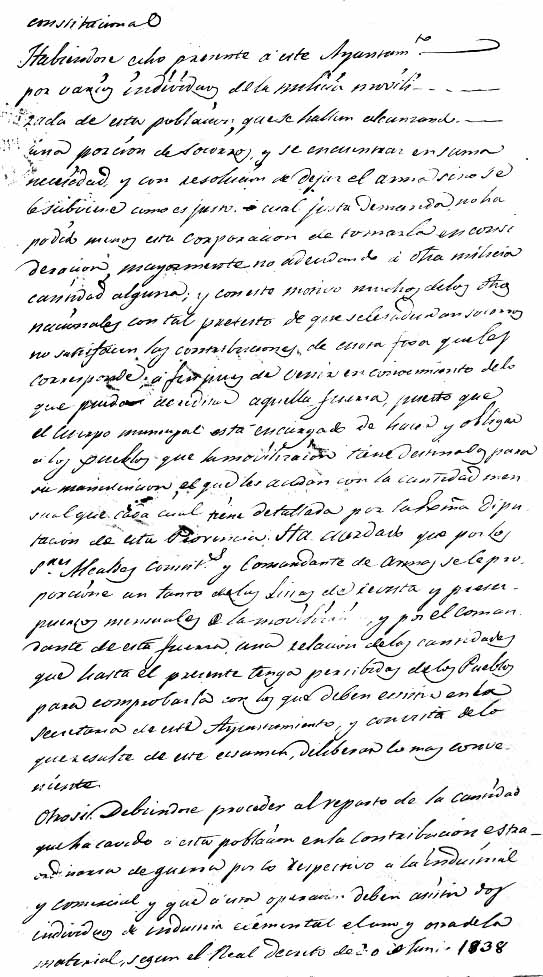 constitucional
Habiendose echo presente á este Ayuntam.to
por varios individuos de la milicia movili-
zada de esta poblacion, que se hallan alcanzando
una porcion de Socorros, y se encuentran en suma
necesidad, y con resolucion de dejar el arma sino se
le subiene como es justo. cual justa demanda no ha
podido menos esta corporacion de tomarla en consi
deracion, mayormente no adeudando á otra milicia
cantidad alguna, y con esto motivo muchos de los otros
nacionales con tal pretesto de que seles adeudan socorros
no satisfacen las contribuciones de cuota fixa que les
corresponde. á fin pues de venir en conocimiento de lo
que pueda acreditar aquella fuerza, puesto que
el Cuerpo municipal está encargado de hacer y obligar
á los pueblos que la movilizacion tiene destinados para
su manutencion, el que les acudan con la cantidad men
sual que cada cual tiene detallada por la Exma Dipu
tacion de esta Provincia. Ha acordado que por los
S.res Alcaldes Constit.s y Comandante de Armas se le pro-
porcione un tanto de las Listas de revista y presu-
puestos mensuales de la movilizada, y por el coman
dante de esta fuerza, una relacion de las cantidades
que hasta el presente tenga percibidas de los Pueblos
para comprobarla con los que deben existir en la
secretaria de este Ayuntamiento, y con vista de lo
que resulte de este ecsamen, deliberar lo mas conve-
niente.
Otrosi: Debiendose proceder al reparto de la cantidad
que ha cavido á esta poblacion en la Contribucion estra-
ordinaria de guerra por lo respectivo á la industrial
y comercial y que á esta operacion deben asistir dos
individuos de industria elemental el uno y otro de la
material, segun el Real decreto de 30 de Junio 1838